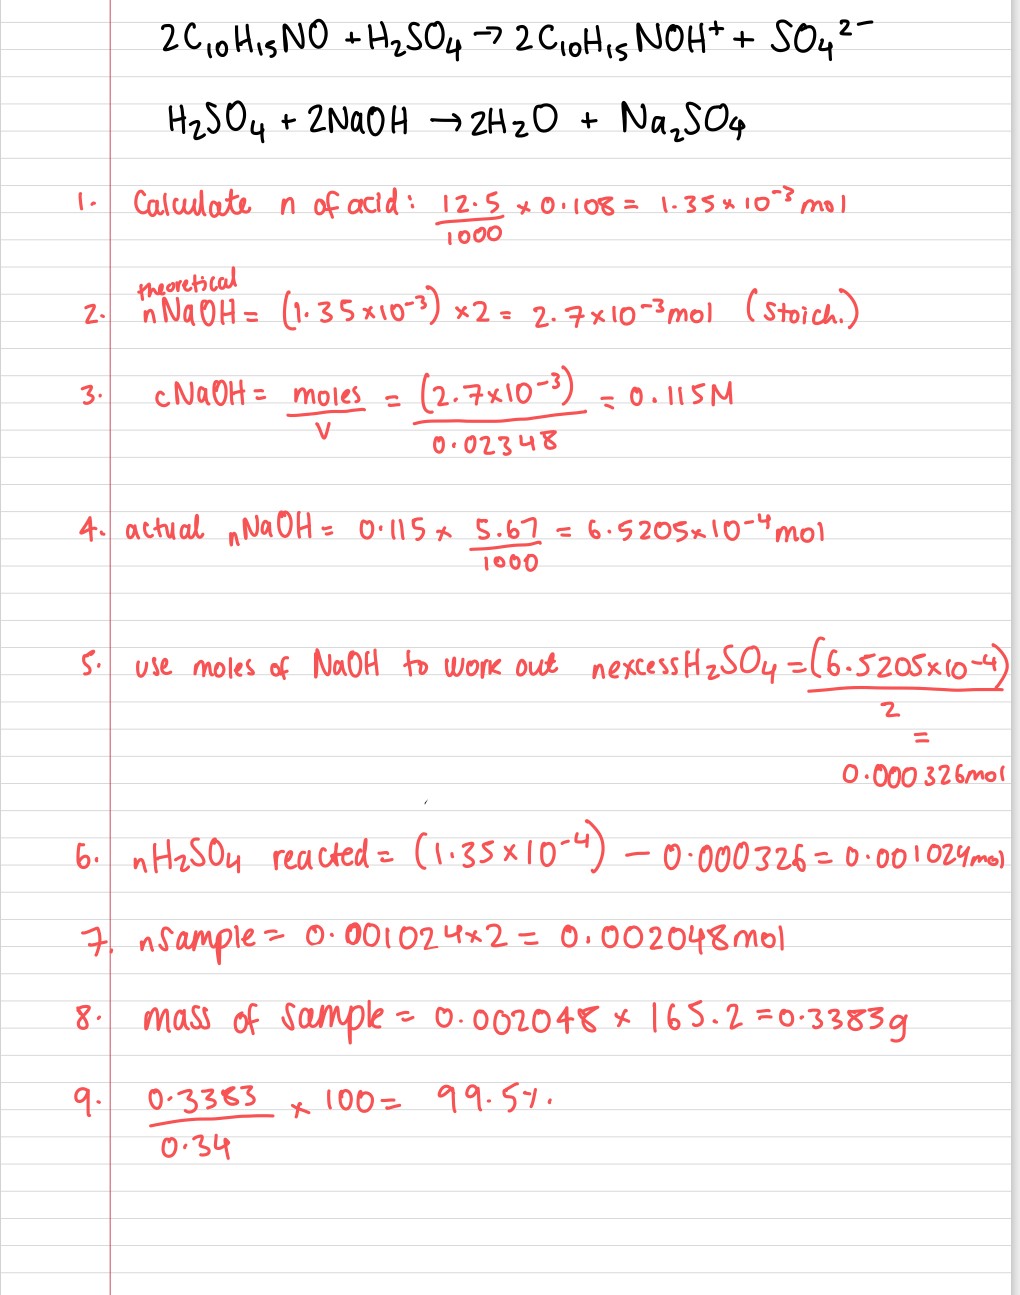 2C₁₀H₁₅NO + H₂SO₄ → 2C₁₀H₁₅NOH⁺ + SO₄²⁻
H₂SO₄ + 2NaOH → 2H₂O + Na₂SO₄
1. Calculate n of acid: 12.5/1000 × 0.108 = 1.35 × 10⁻³ mol
theoretical
2. nNaOH = (1.35×10⁻³) ×2 = 2.7×10⁻³ mol (Stoich.)
3. cNaOH = moles/V = (2.7×10⁻³)/0.02348 = 0.115M
4. actual nNaOH = 0.115 × 5.67/1000 = 6.5205×10⁻⁴ mol
5. use moles of NaOH to work out nexcess H₂SO₄ = (6.5205×10⁻⁴)/2
=
0.000326mol
6. nH₂SO₄ reacted = (1.35×10⁻⁴) – 0.000326 = 0.001024mol
7. nsample = 0.001024×2 = 0.002048mol
8. mass of sample = 0.002048 × 165.2 = 0.3383g
9. 0.3383/0.34 × 100 = 99.5%.